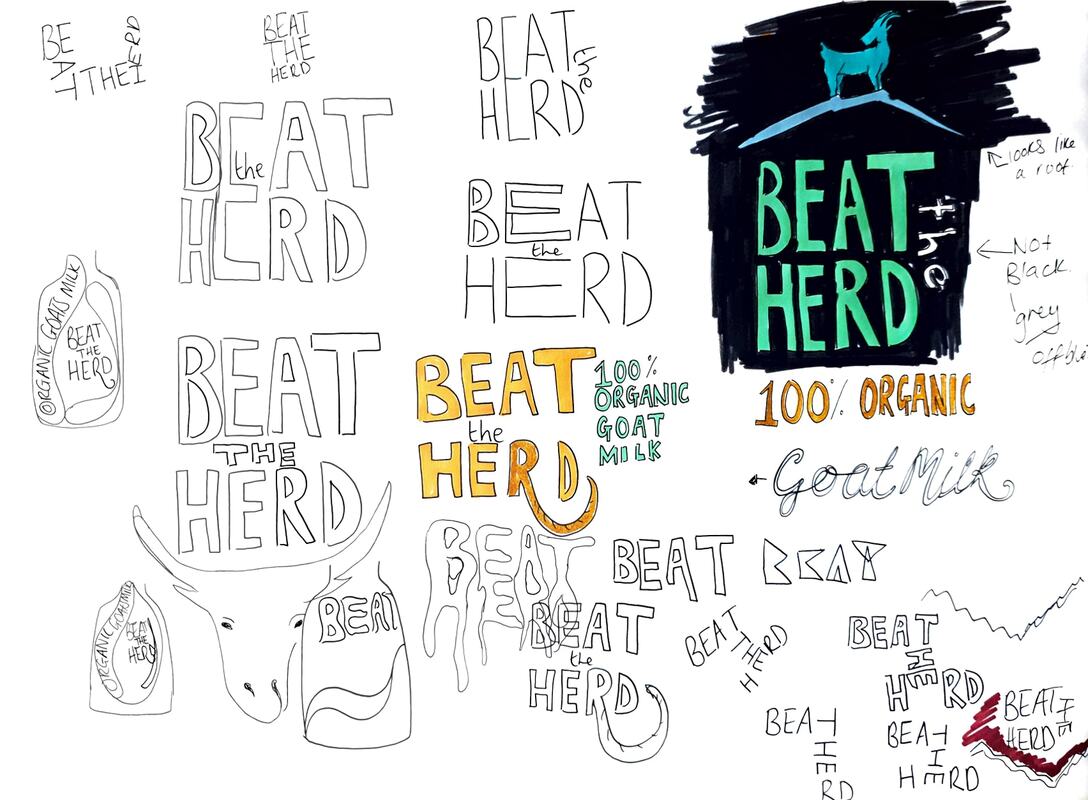 BE
AT THE HERD
BEAT
THE
HERD
BEAT
the
HERD
BEAT
the
HERD
BEAT
the
HERD
BEAT
the
HERD
looks like
a roof.
Not
Black.
grey
offbla
ORGANIC GOATS MILK
BEAT
THE
HERD
BEAT
THE
HERD
BEAT
the
HERD
100%
ORGANIC
GOAT
MILK
100% ORGANIC
Goat Milk
BEAT
HERD
BEAT
BEAT
ORGANIC GOATS MILK
BEAT
THE
HERD
BEAT
BEAT
the
HERD
BEAT
THE
HERD
BEAT
THE
HERD
BEAT
THE
HERD
BEAT
THE
HERD
BEAT
THE
HERD